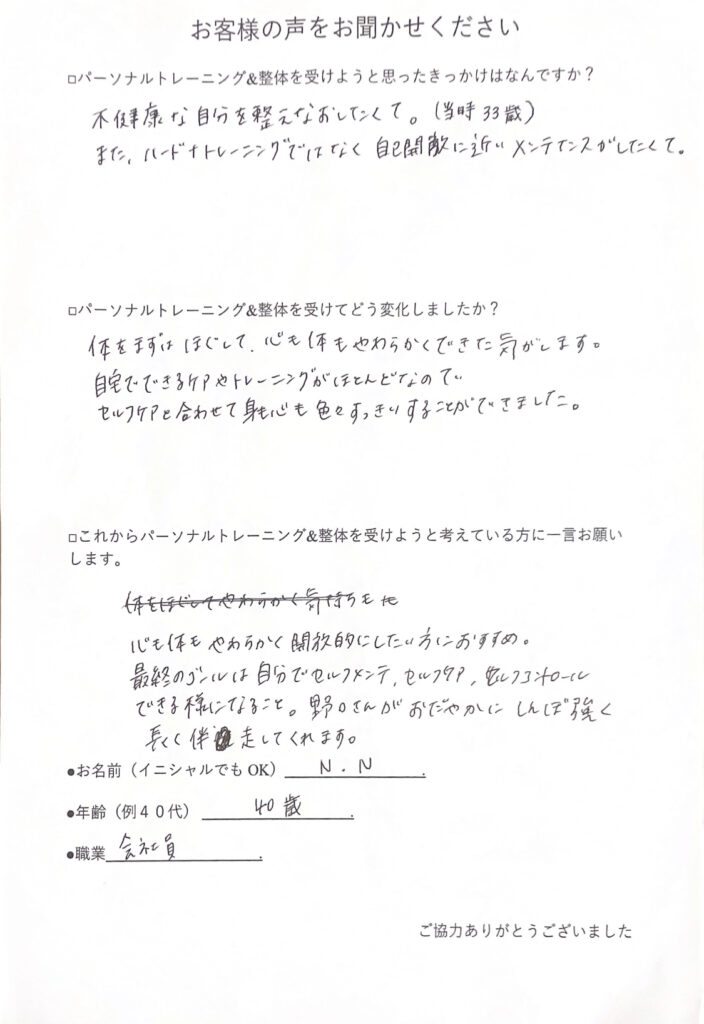 お客様の声をお聞かせください
□パーソナルトレーニング&整体を受けようと思ったきっかけはなんですか？
不健康な自分を整えなおしたくて。(当時33歳)
また、ハードなトレーニングではなく 自己開放に近い メンテナンスがしたくて。
□パーソナルトレーニング&整体を受けてどう変化しましたか？
体をまずは ほぐして、心も体もやわらかくできた気がします。
自宅でできるケアやトレーニングがほとんどなので、
セルフケアと合わせて身も心も色々すっきりすることができました。
□これからパーソナルトレーニング&整体を受けようと考えている方に一言お願い
します。
体をほぐしてやわらかく気持ちも
心も体もやわらかく開放的にしたい方におすすめ。
最終のゴールは自分でセルフメンテ、セルフケア、セルフコントロール
できる様になること。野口さんがおだやかに しんぼ強く
長く伴走してくれます。
●お名前（イニシャルでもOK） N.N .
●年齢（例４０代） 40歳 .
●職業 会社員 .
ご協力ありがとうございました